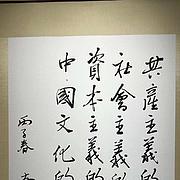 共產主義的
社會主義的
資本主義的
中國文化的
丙子春